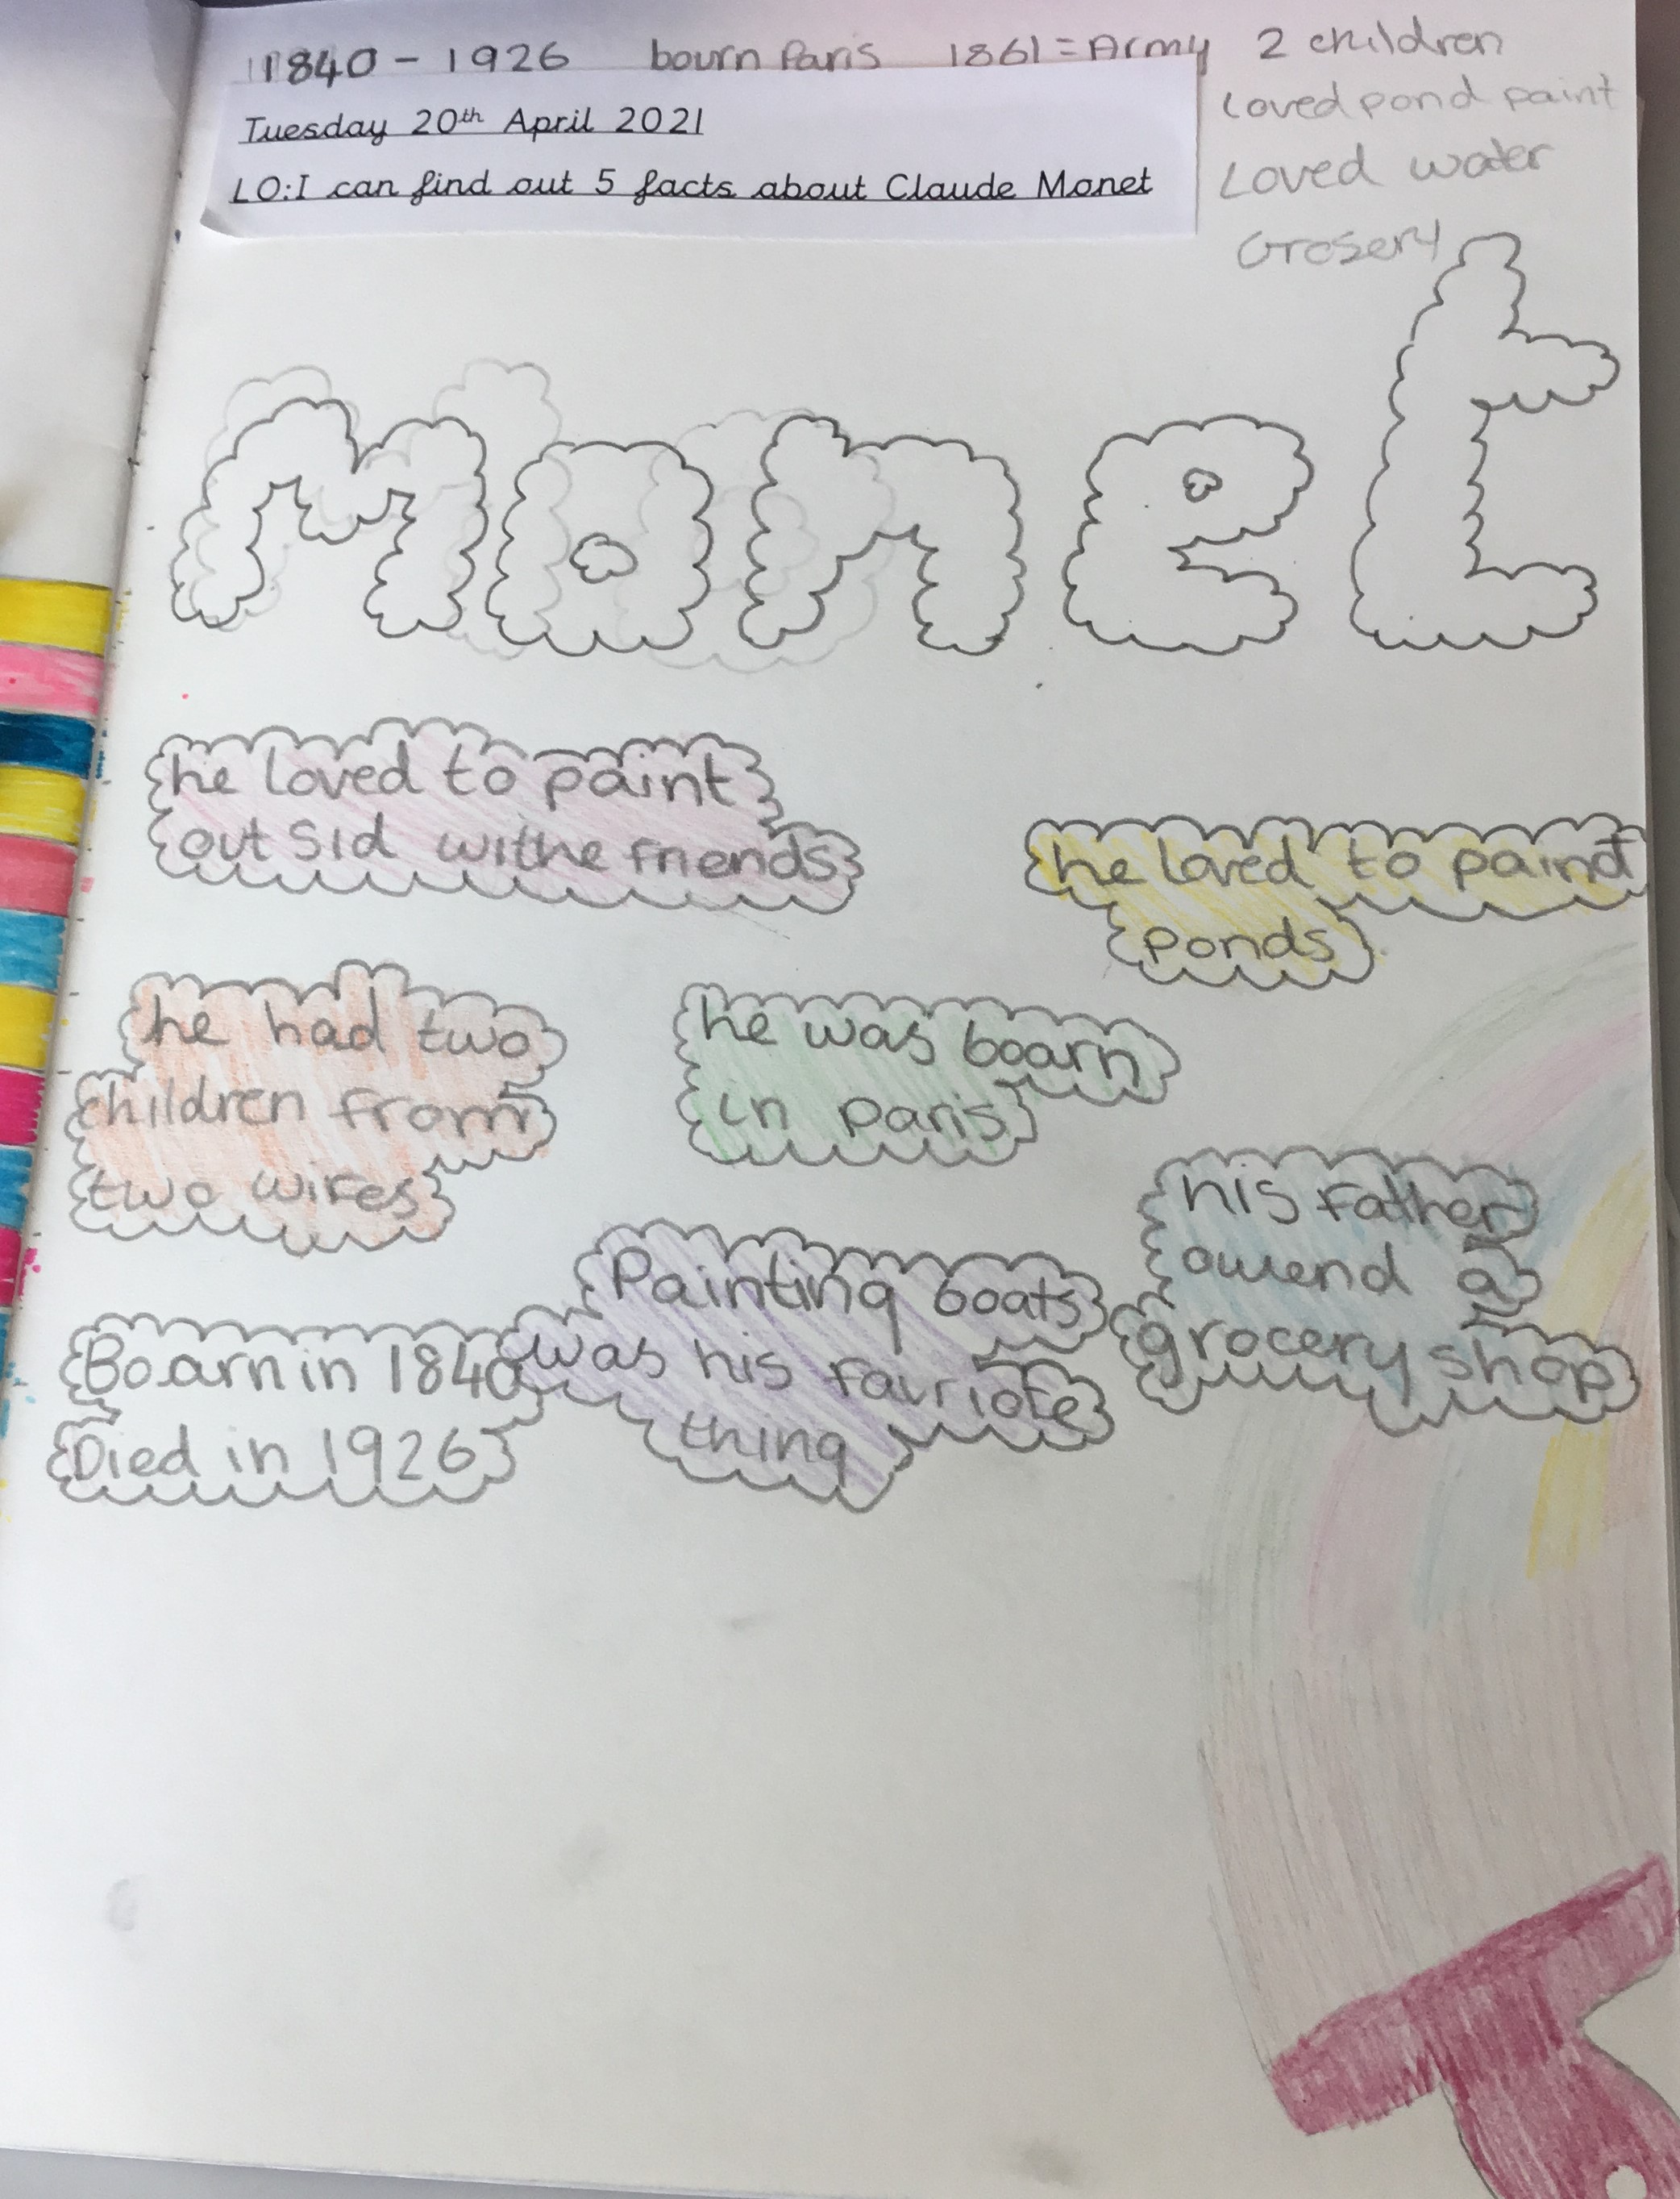 1840 - 1926 bourn Paris 1861 = Army 2 children
Loved pond paint
Loved water
Grosery
Tuesday 20th April 2021
LO:I can find out 5 facts about Claude Monet
Monet
he loved to paint
out sid withe friends
he loved to paint
ponds
he had two
children from
two wifes
he was boarn
in paris
his father
owend a
grocery shop
Painting boats
was his faivriote
thing
Boarn in 1840
Died in 1926